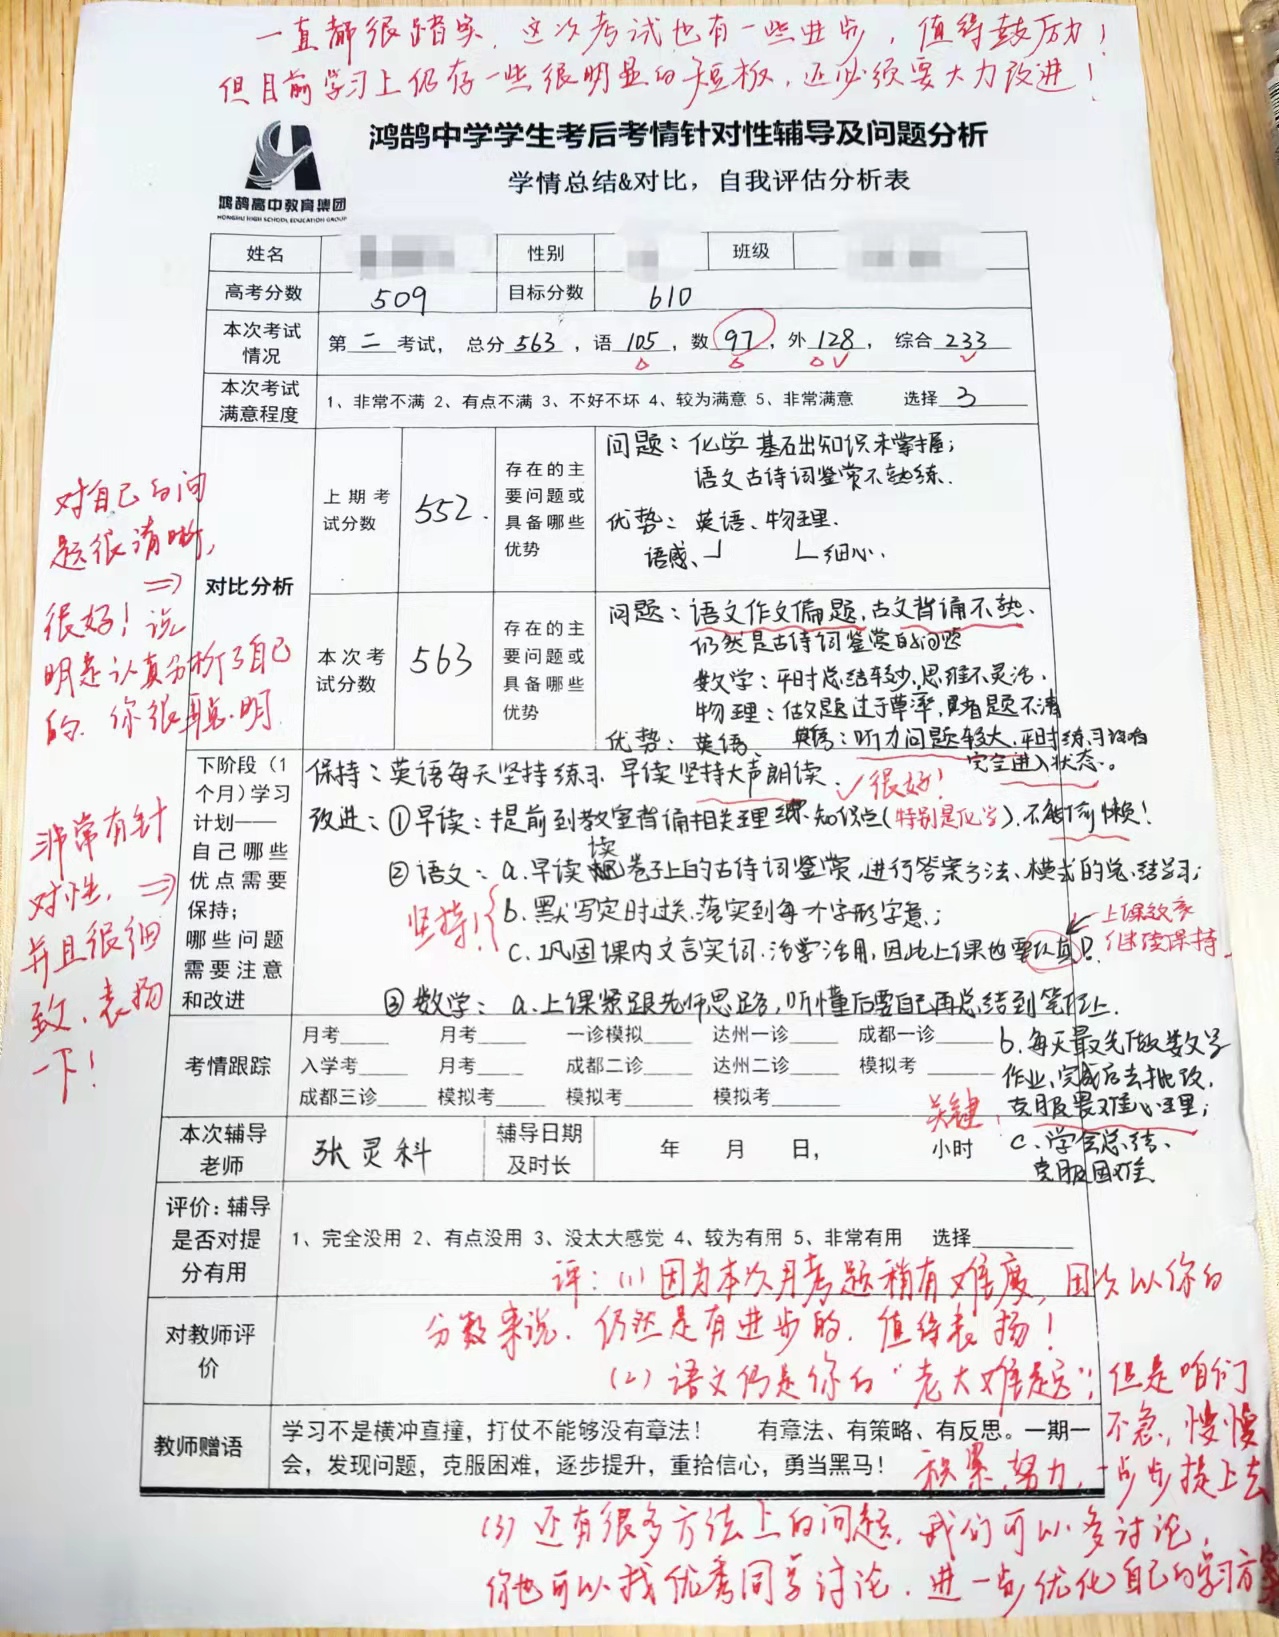 一直都很踏实，这次考试也有一些进步，值得鼓励！
但目前学习上仍存一些很明显的短板，还必须要大力改进！
鸿鹄高中教育集团
HONGHU HIGH SCHOOL EDUCATION GROUP
鸿鹄中学学生考后考情针对性辅导及问题分析
学情总结&对比，自我评估分析表
姓名 性别 班级
高考分数 509 目标分数 610
本次考试情况 第二考试， 总分563，语105，数97，外128， 综合233
本次考试满意程度 1、非常不满 2、有点不满 3、不好不坏 4、较为满意 5、非常满意 选择 3
对比分析
上期考试分数 552.
存在的主要问题或具备哪些优势
问题：化学基础知识未掌握；
语文古诗词鉴赏不熟练.
优势：英语、物理.
语感、 细心.
本次考试分数 563
存在的主要问题或具备哪些优势
问题：语文作文偏题,古文背诵不熟、
仍然是古诗词鉴赏的问题
数学：平时总结较少,思维不灵活.
物理：做题过于草率,看题不清
优势：英语、 英语：听力问题较大,平时练习没有
完全进入状态。
对自己的问
题很清晰,
很好！说
明是认真分析了自己
的.你很聪明.
下阶段（1个月）学习计划——自己哪些优点需要保持；哪些问题需要注意和改进
保持：英语每天坚持练习.早读坚持大声朗读. 很好！
改进：①早读：提前到教室背诵相关理综知识点(特别是化学).不能偷懒！
②语文：a.早读读卷子上的古诗词鉴赏,进行答案方法、模式的总结学习；
坚持！ b.默写定时过关.落实到每个字形字意；
c.巩固课内文言实词.活学活用,因此上课也要认真!
上课效率
继续保持
③数学：a.上课紧跟老师思路,听懂后要自己再总结到笔记上.
b.每天最先做数学
作业,完成后去批改.
关键， 克服畏难心理；
c.学会总结、
克服困难
非常有针
对性,
并且很细
致,表扬
一下！
考情跟踪
月考 月考 一诊模拟 达州一诊 成都一诊
入学考 月考 成都二诊 达州二诊 模拟考
成都三诊 模拟考 模拟考 模拟考
本次辅导老师 张灵科 辅导日期及时长 年 月 日， 小时
评价：辅导是否对提分有用 1、完全没用 2、有点没用 3、没太大感觉 4、较为有用 5、非常有用 选择
评：(1)因为本次月考题稍有难度，因次以你的
分数来说.仍然是有进步的.值得表扬！
对教师评价
(2)语文仍是你的“老大难题”；但是咱们
不急，慢慢
积累,努力,一步步提上去
教师赠语 学习不是横冲直撞，打仗不能够没有章法！ 有章法、有策略、有反思。一期一
会，发现问题，克服困难，逐步提升，重拾信心，勇当黑马！
(3)还有很多方法上的问题,我们可以多讨论,
你也可以找优秀同学讨论.进一步优化自己的学习方案